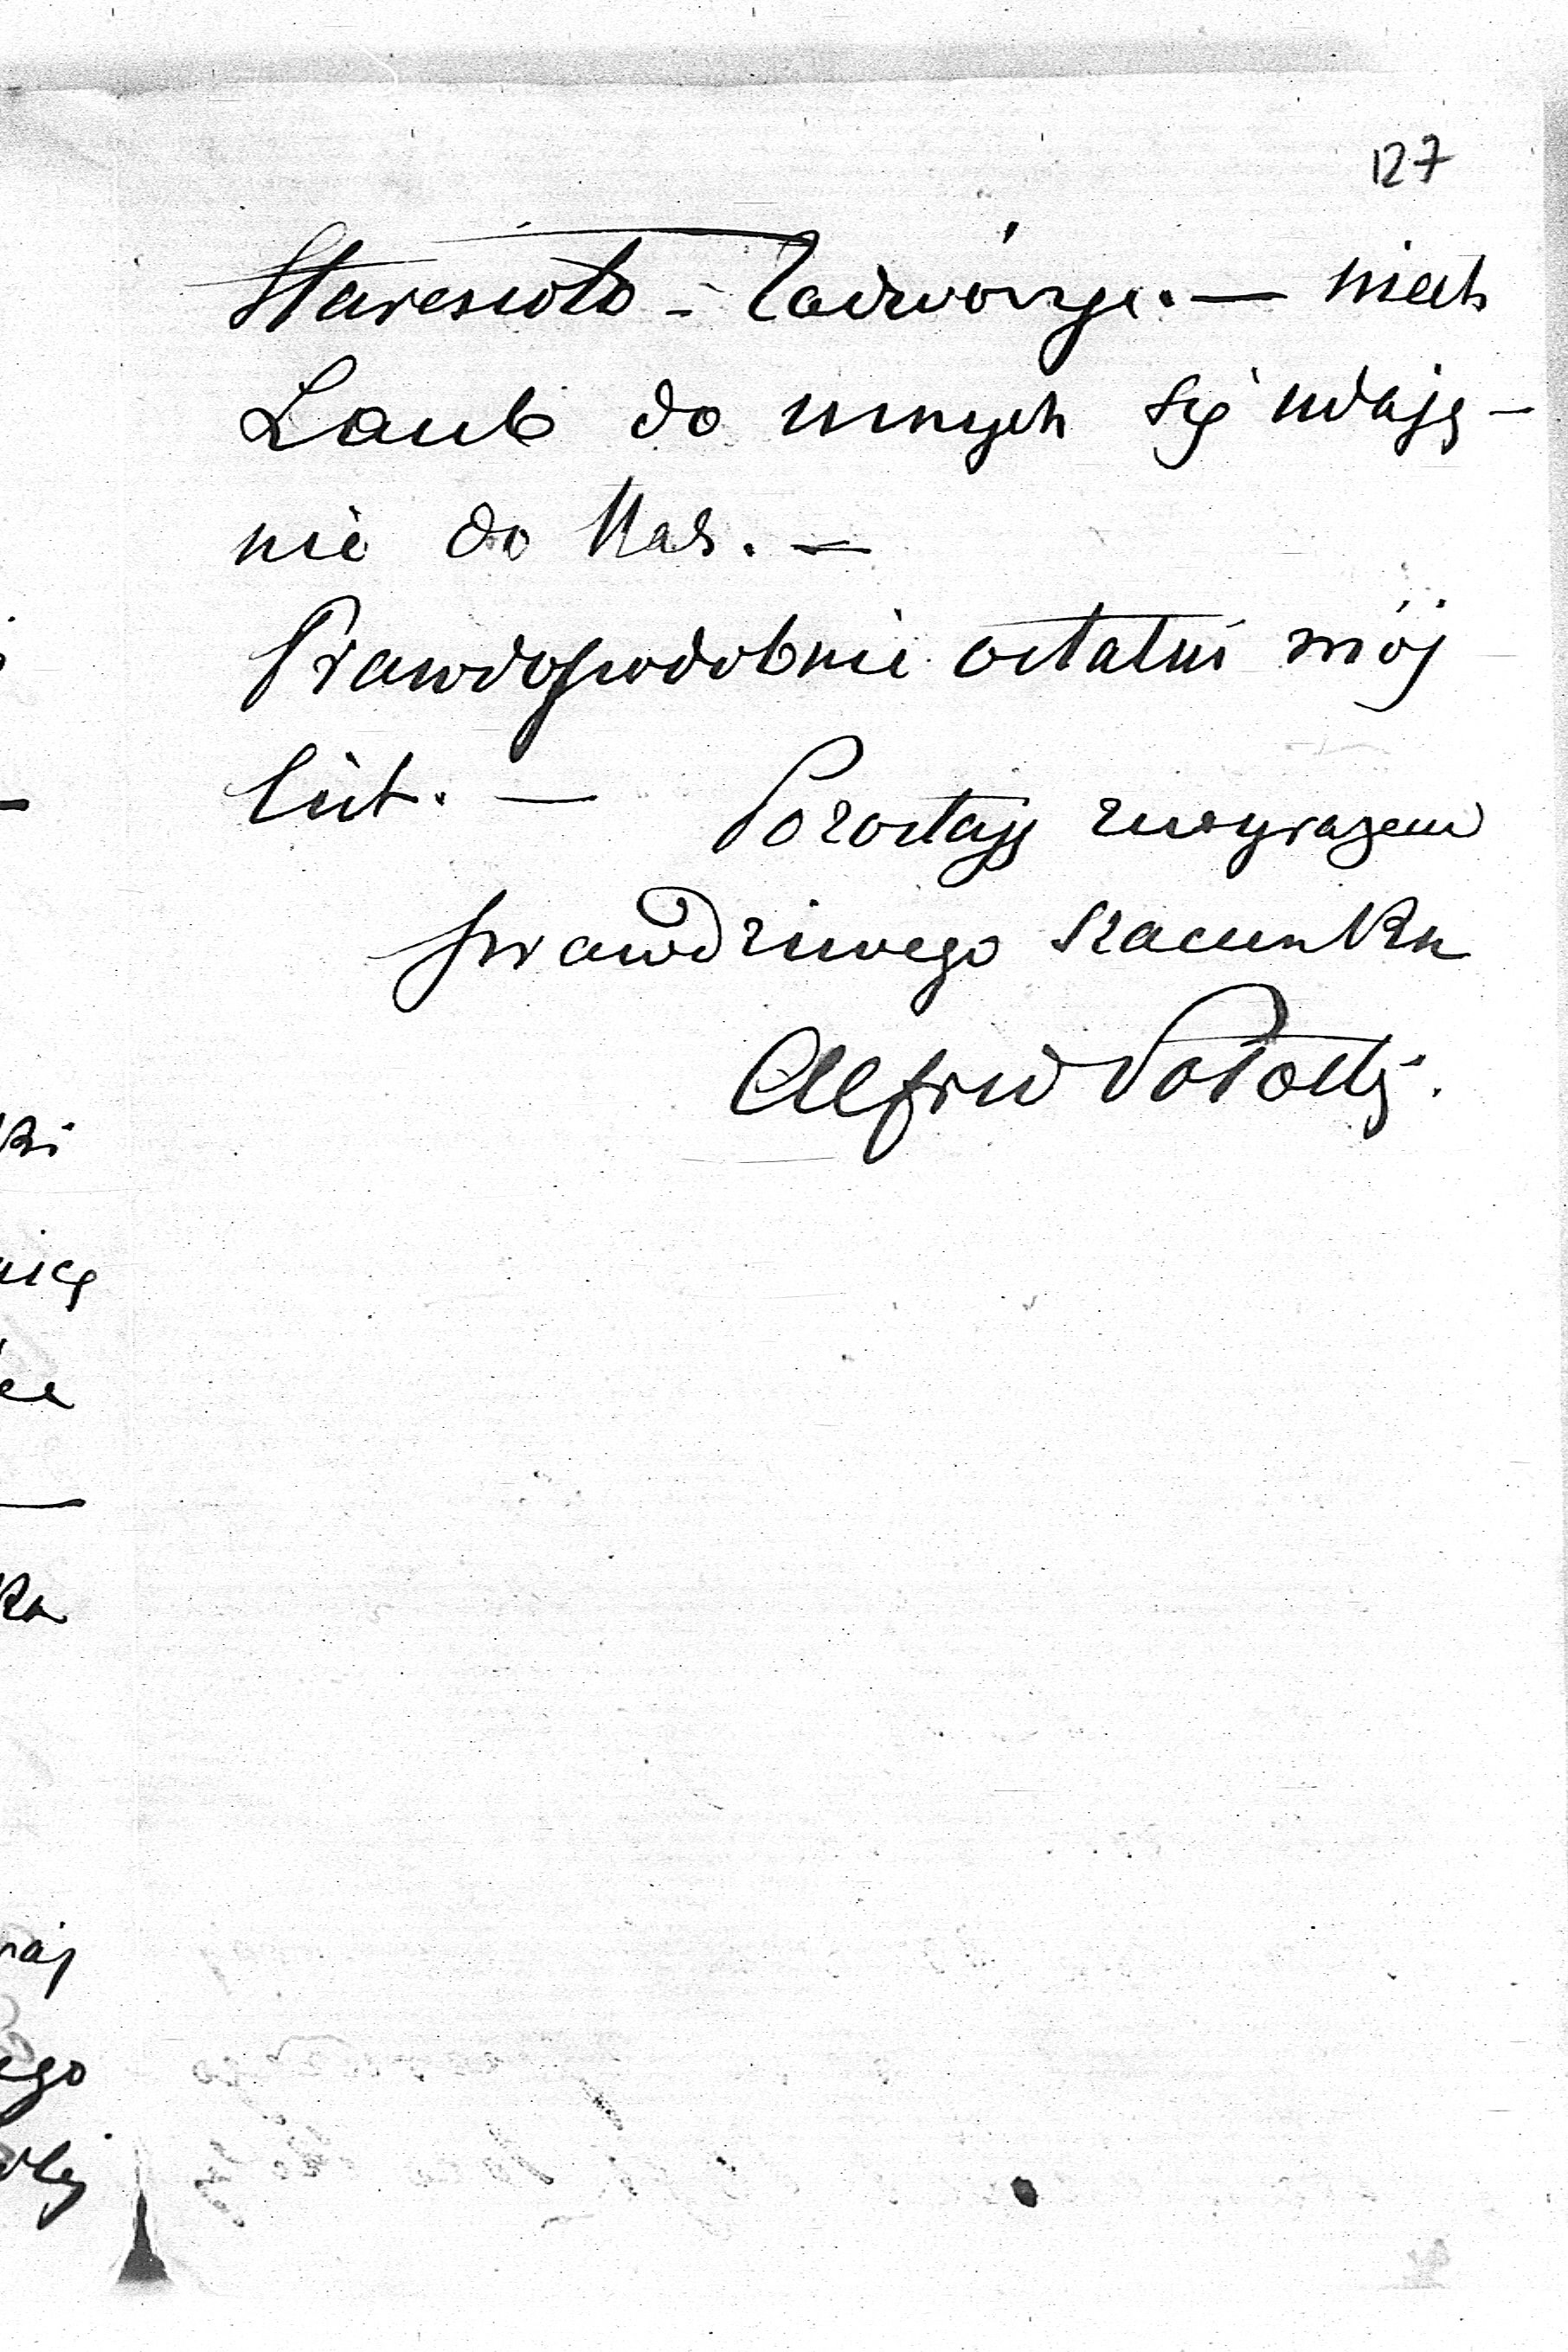 127
Staresioło - Zadwórze. — niech
Laub do innych się udają —
nie do Nas. —
Prawdopodobnie ostatni mój
list. — Pozostaję z wyrazem
prawdziwego szacunku
Alfred Potocki.